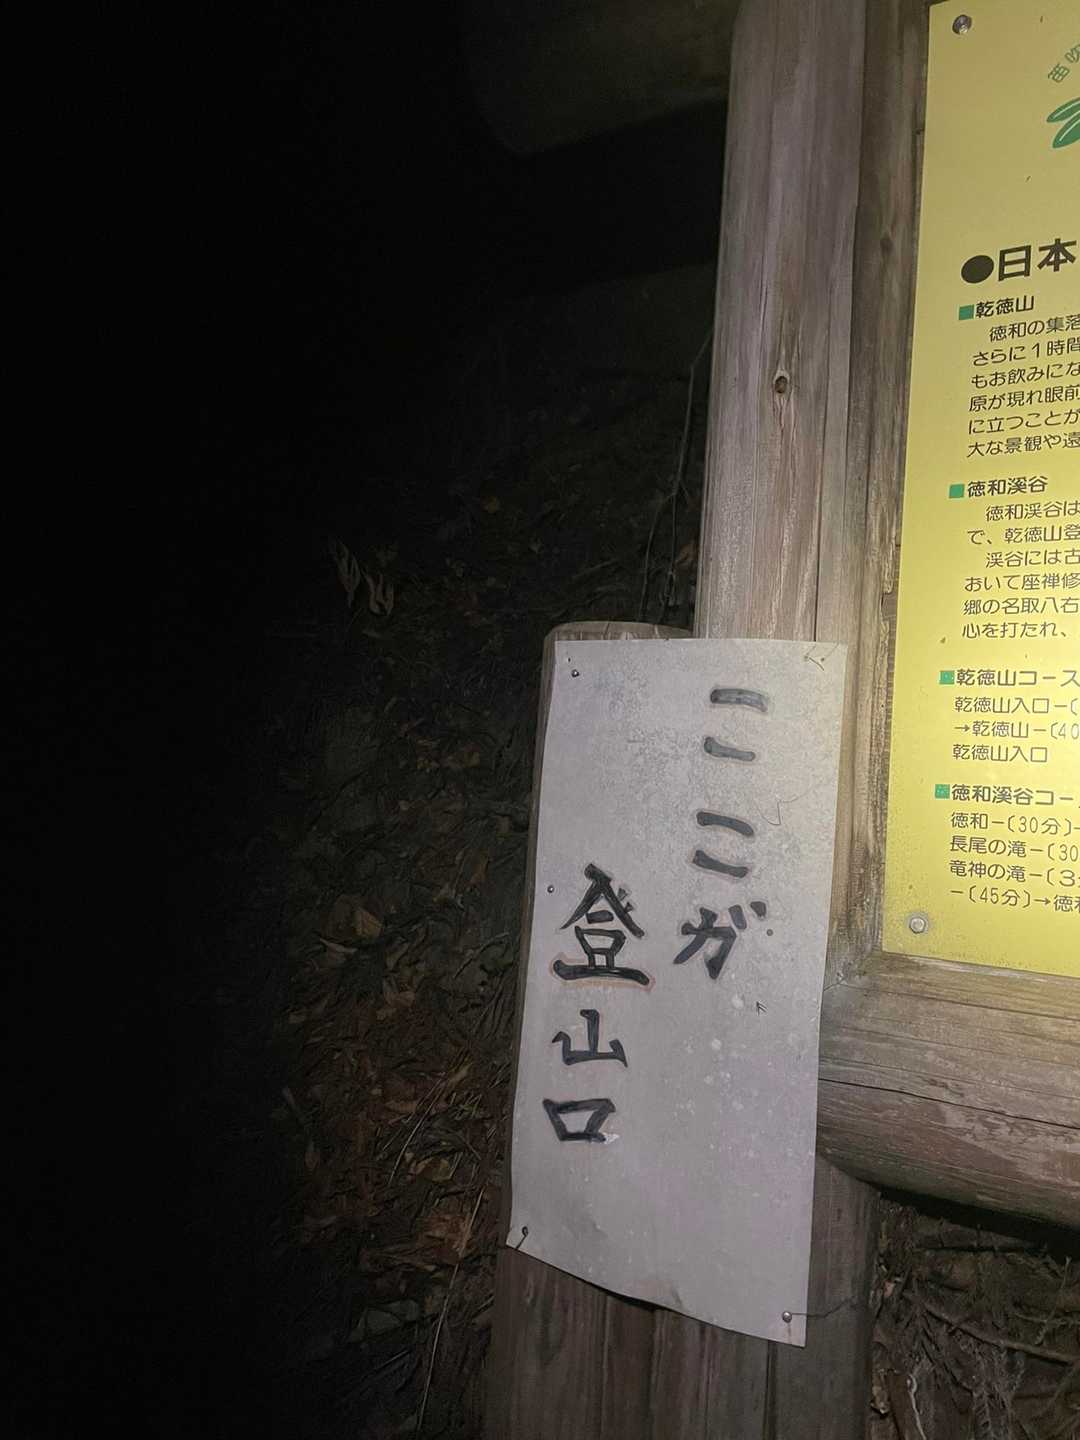 ここが
登山口
●日本
■乾徳山
徳和の集落
さらに1時間
もお飲みにな
原が現れ眼前
に立つことが
大な景観や遠
■徳和渓谷
徳和渓谷は
で、乾徳山登
渓谷には古
おいて座禅修
郷の名取八右
心を打たれ、
■乾徳山コース
乾徳山入口－〔
→乾徳山－〔40
乾徳山入口
■徳和渓谷コー
徳和－〔30分〕－
長尾の滝－〔30
竜神の滝－〔3
－〔45分〕→徳